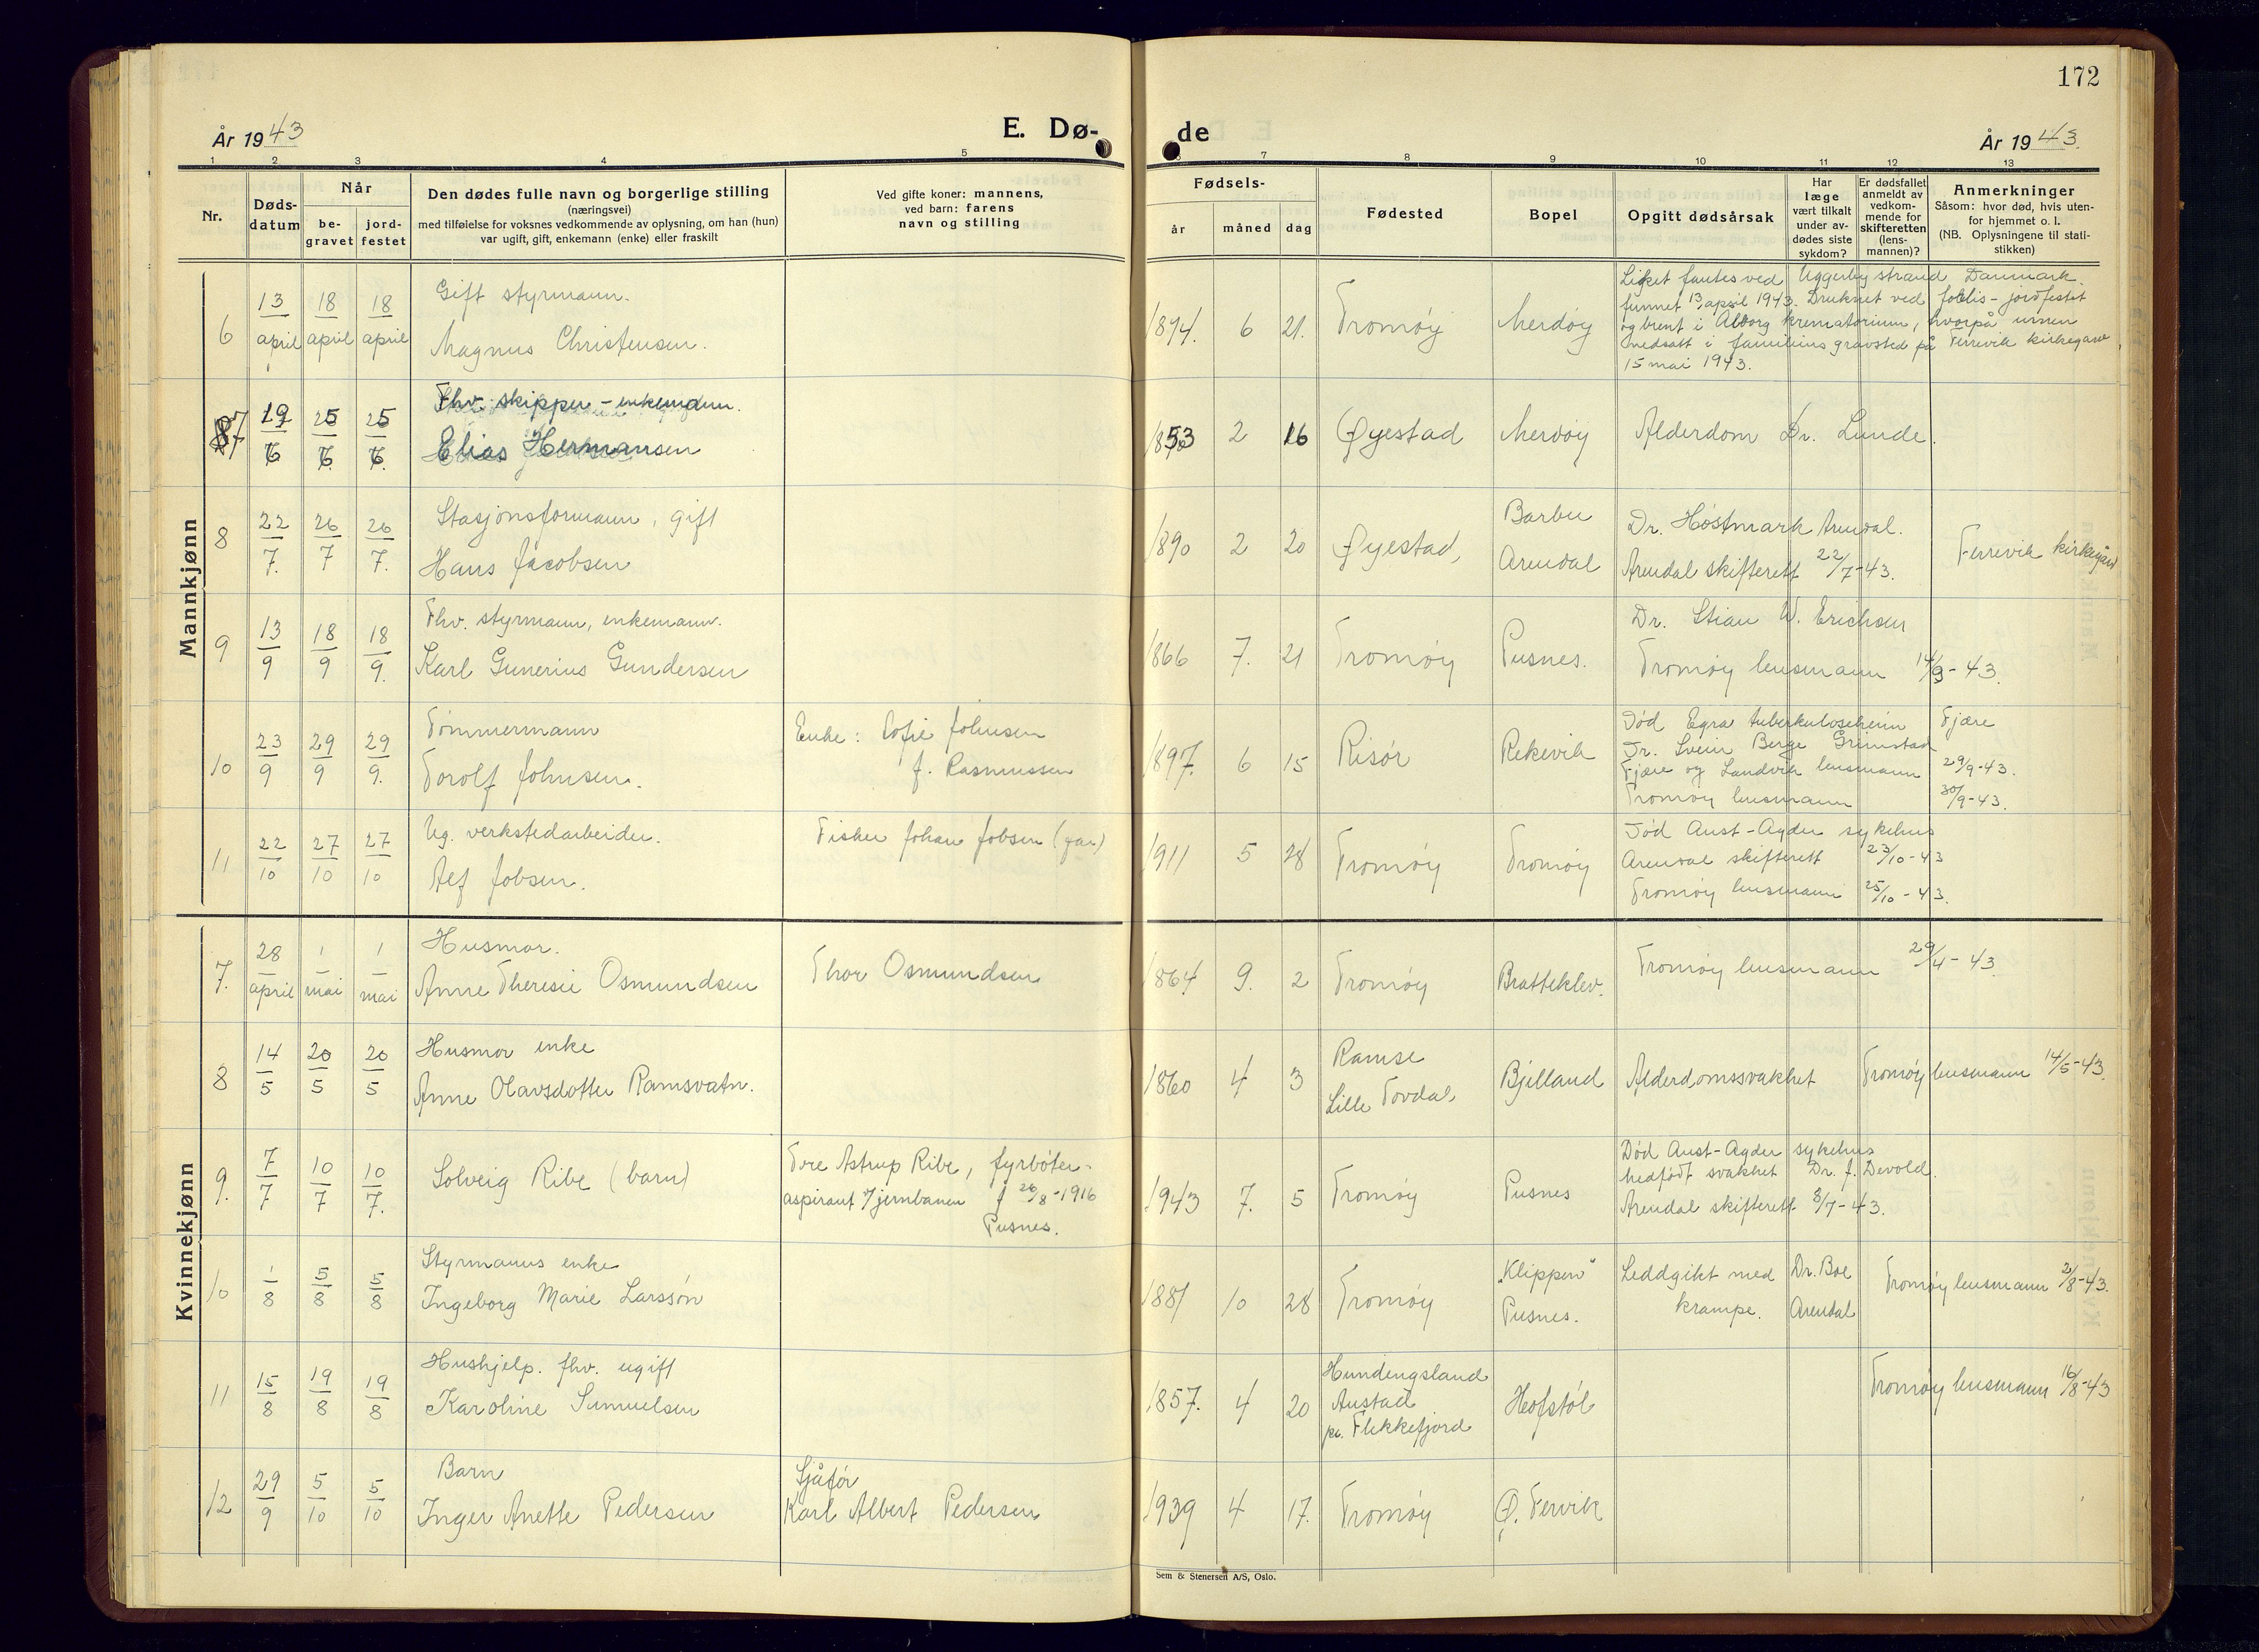 172
År 1943
E. Dø-
de
År 1943.
1 2 3 4 5 6 7 8 9 10 11 12 13
Nr.
Døds-
datum
Når
be-
gravet
jord-
festet
Den dødes fulle navn og borgerlige stilling
(næringsvei)
med tilføielse for voksnes vedkommende av oplysning, om han (hun)
var ugift, gift, enkemann (enke) eller fraskilt
Ved gifte koner: mannens,
ved barn: farens
navn og stilling
Fødsels-
år måned dag
Fødested
Bopel
Opgitt dødsårsak
Har
læge
vært tilkalt
under av-
dødes siste
sykdom?
Er dødsfallet
anmeldt av
vedkom-
mende for
skifteretten
(lens-
mannen)?
Anmerkninger
Såsom: hvor død, hvis uten-
for hjemmet o. l.
(NB. Oplysningene til stati-
stikken)
Mannkjønn
6 13/april 18/april 18/april
Gift styrmann.
Magnus Christensen.
1874. 6 21. Tromøy Merdøy
Liket fantes ved Uggerby strand Danmark.
funnet 13. april 1943. Druknet ved forlis - jordfestet
og brent i Ålborg krematorium, hvorpå urnen
nedsatt i familiens gravsted på Færvik kirkegård
15 mai 1943.
7 19/6 25/6. 25/6.
Fhv. skipper - enkemann.
Elias Hermansen
1853 2 16 Øyestad Merdøy Alderdom Dr. Lunde.
8 22/7. 26/7 26/7.
Stasjonsformann, gift
Hans Jacobsen
1890 2 20 Øyestad,
Barbu
Arendal
Dr. Høstmark Arendal.
Arendal skifterett 22/7-43.
Ferrevik kirkegård
9 13/9 18/9 18/9.
Fhv. styrmann, enkemann.
Karl Gunerius Gundersen
1866 7. 21 Tromøy Pusnes.
Dr. Stian W. Erichsen
Tromøy lensmann 14/9-43.
10 23/9 29/9 29/9.
Tømmermann
Torolf Johnsen.
Enke: Sofie Johnsen
f. Rasmussen
1897. 6 15 Risør Rekevik
Død Egra tuberkulosehjem Fjære
Dr. Svein Berge Grimstad
Fjære og Landvik lensmann 29/9-43.
Tromøy lensmann 30/9-43.
11 22/10 27/10 27/10
Ug. verkstedarbeider.
Alf Jobsen.
Fisker Johan Jobsen (far)
1911 5 28 Tromøy Tromøy
Død Aust-Agder sykehus
Arendal skifterett 23/10-43
Tromøy lensmann 25/10-43.
Kvinnekjønn
7. 28/april 1/mai 1/mai
Husmor.
Anne Theresie Osmundsen
Thor Osmundsen
1864 9. 2 Tromøy Bratteklev.
Tromøy lensmann 29/4-43.
8 14/5 20/5 20/5
Husmor enke
Anne Olavsdotter Ramsvatn.
1860 4 3
Ramse
Lille Tovdal,
Bjelland Alderdomssvakhet Tromøy lensmann 14/5-43.
9. 7/7 10/7 10/7.
Solveig Ribe (barn)
Tore Astrup Ribe, fyrbøter-
aspirant v/jernbanen f 26/8-1916
Pusnes.
1943 7. 5 Tromøy Pusnes
Død Aust-Agder sykehus
medfødt svakhet Dr. J. Devold.
Arendal skifterett 8/7-43.
10 1/8 5/8 5/8
Styrmanns enke
Ingeborg Marie Larssøn
1887 10 28 Tromøy
"Klippen"
Pusnes.
Leddgikt med
krampe.
Dr. Boe
Arendal
Tromøy lensmann 2/8-43.
11 15/8 19/8 19/8
Hushjelp. fhv. ugift
Karoline Samuelsen
1857. 4 20
Austad
pr. Flekkefjord
Hofstøl
Tromøy lensmann 16/8-43
12 29/9 5/10 5/10
Barn
Inger Anette Pedersen
Sjåfør
Karl Albert Pedersen
1939 4 17. Tromøy Ø. Fervik
Sem & Stenersen A/S, Oslo.